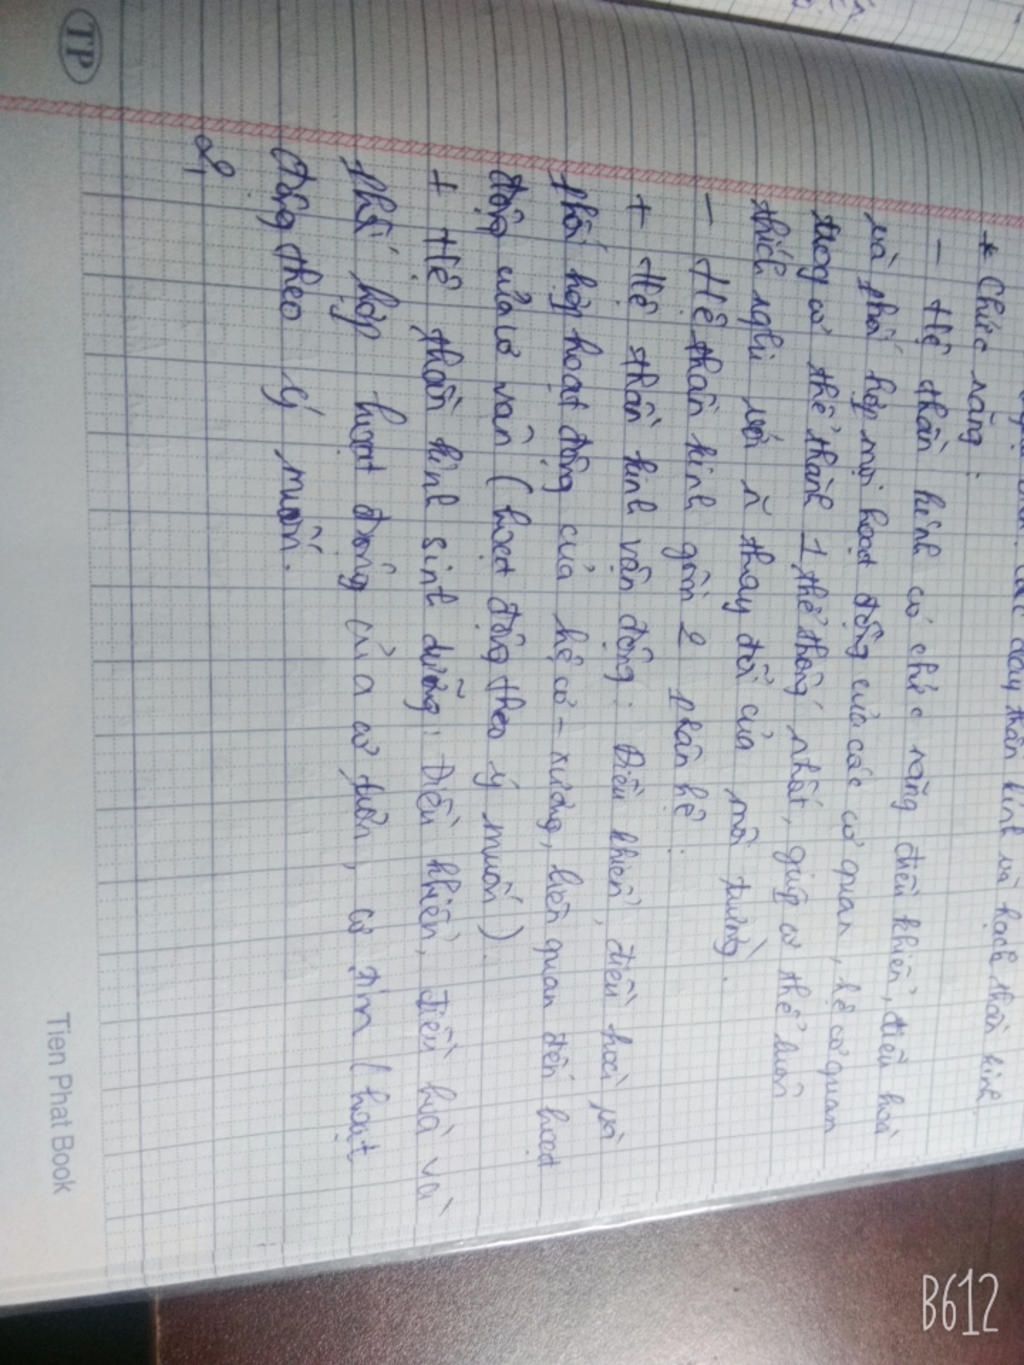 dây thần kinh và hạch thần kinh
* Chức năng:
- Hệ thần kinh có chức năng điều khiển, điều hoà
và phối hợp mọi hoạt động của các cơ quan, hệ cơ quan
trong cơ thể thành 1 thể thống nhất, giúp cơ thể luôn
thích nghi với thay đổi của môi trường.
- Hệ thần kinh gồm 2 phân hệ:
+ Hệ thần kinh vận động: Điều khiển, điều hoà và
phối hợp hoạt động của hệ cơ - xương, liên quan đến hoạt
động của cơ vân (hoạt động theo ý muốn).
+ Hệ thần kinh sinh dưỡng: Điều khiển, điều hoà và
phối hợp hoạt động của cơ trơn, cơ tim (hoạt
động theo ý muốn.
2,
TP
Tien Phat Book
B612